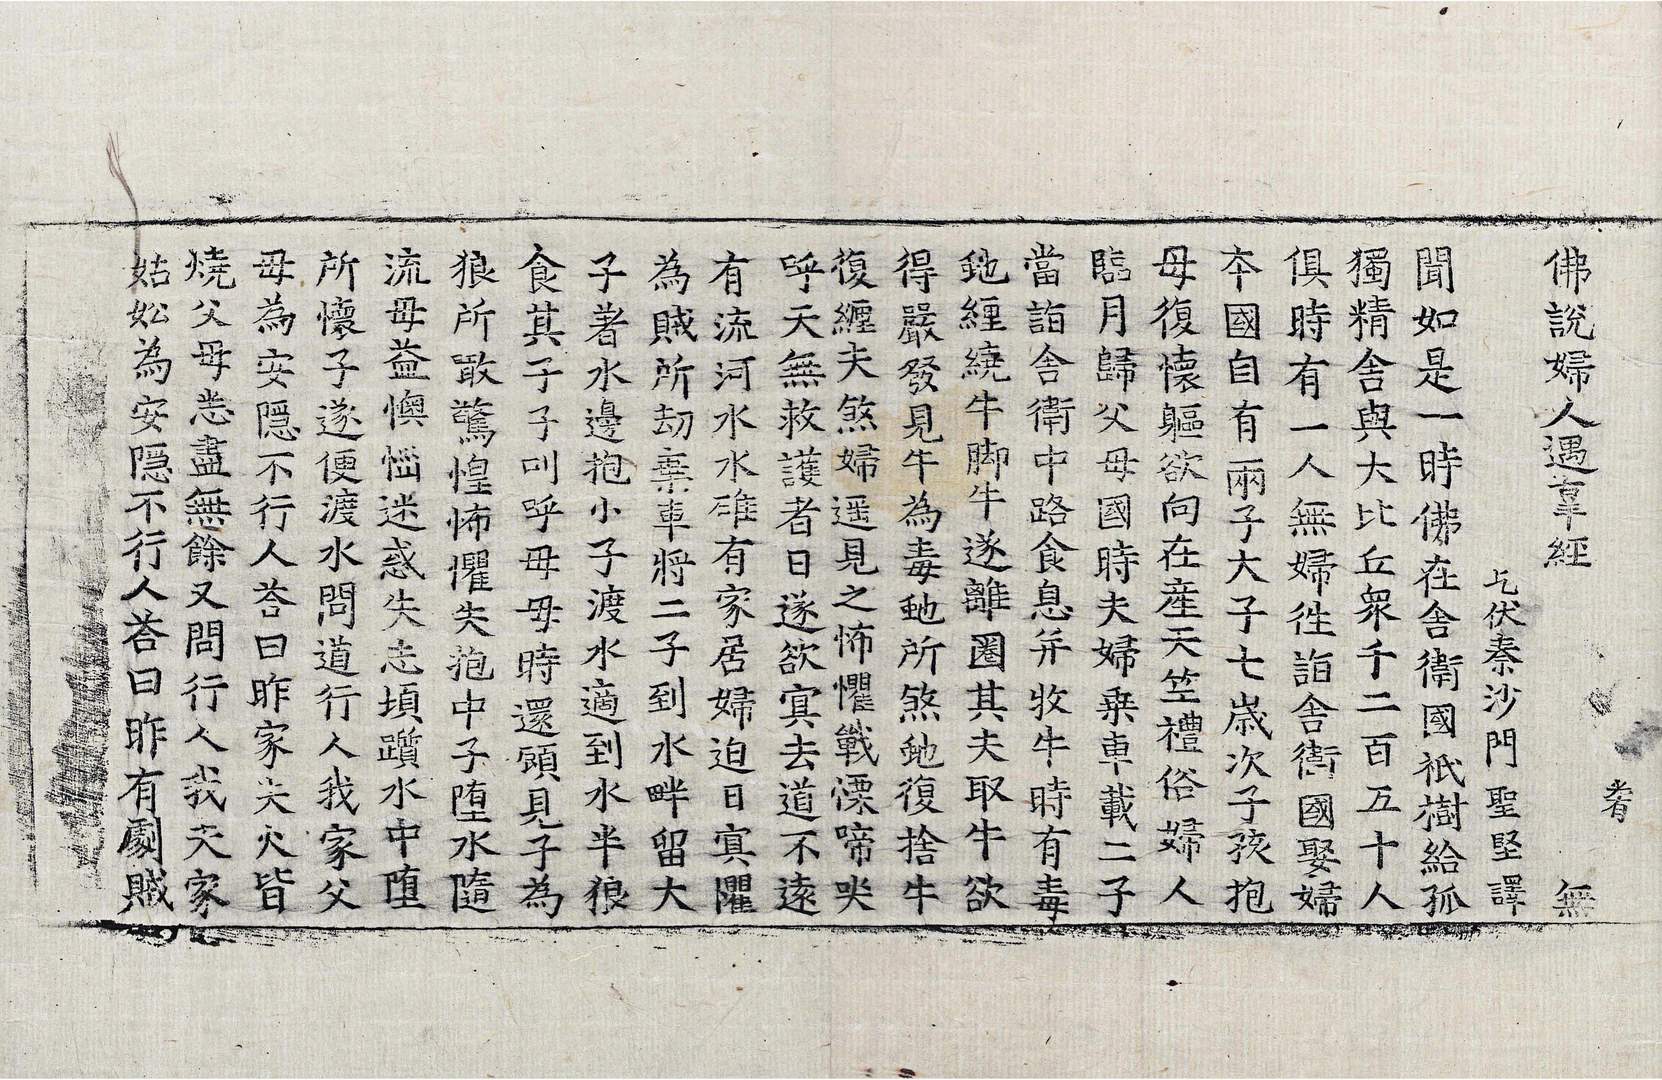 佛說婦人遇辜經 無
乞伏秦沙門聖堅譯
聞如是一時佛在舍衛國祇樹給孤
獨精舍與大比丘衆千二百五十人
俱時有一人無婦徃詣舍衛國娶婦
本國自有兩子大子七歲次子孩抱
母復懷軀欲向在產天竺禮俗婦人
臨月歸父母國時夫婦乗車載二子
當詣舍衛中路食息并牧牛時有毒
虵纏繞牛脚牛遂離圈其夫取牛欲
得嚴發見牛為毒虵所煞虵復捨牛
復纏夫煞婦遥見之怖懼戰慄啼哭
呼天無救護者日遂欲㝠去道不遠
有流河水水碓有家居婦迫日㝠懼
為賊所劫棄車將二子到水畔留大
子著水邊抱小子渡水適到水半狼
食其子子叫呼母母時還顧見子為
狼所噉驚惶怖懼失抱中子墮水隨
流母益懊惱迷惑失志頃躓水中墮
所懷子遂便渡水問道行人我家父
母為安隱不行人荅曰昨家失火皆
燒父母悉盡無餘又問行人我夫家
姑妐為安隱不行人荅曰昨有劇賊